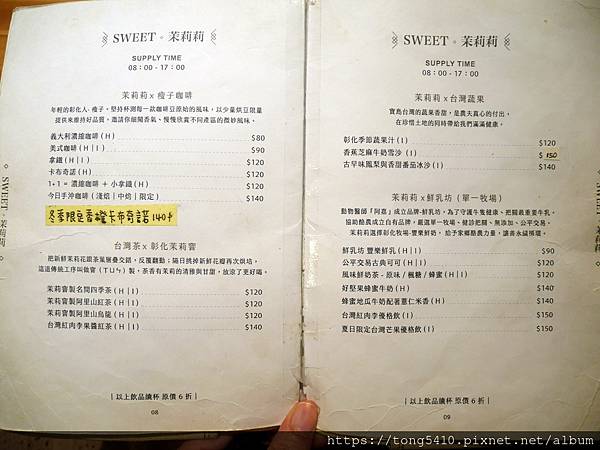 SWEET。茉莉莉
SUPPLY TIME
08:00-17:00
茉莉莉 x 瘦子咖啡
年輕的彰化人-瘦子。堅持杯測每一款咖啡豆原始的風味,以少量烘豆限量
提供來維持好品質。邀請你細聞香氣、慢慢欣賞不同產區的微妙風味。
義大利濃縮咖啡(H) $80
美式咖啡(H|I) $90
拿鐵(H|I) $120
卡布奇諾(H) $120
1+1=濃縮咖啡+小拿鐵(H) $120
今日手沖咖啡(淺焙|中焙|限定) $140
冬季限定香橙卡布奇諾 140
台灣茶 x 彰化茉莉窨
把新鮮茉莉花跟茶葉層疊交錯,反覆翻動;隔日挑掉新鮮花瓣再次烘培。
這道傳統工序叫做窨(ㄒㄩㄣ)製。茶香有茉莉的清雅與甘甜,放涼了更好喝。
茉莉窨製名間四季茶(H|I) $120
茉莉窨製阿里山紅茶(H|I) $120
茉莉窨製阿里山烏龍(H|I) $120
台灣紅肉李果醬紅茶(H|I) $140
|以上飲品續杯 原價6折|
08
SWEET。茉莉莉
SUPPLY TIME
08:00-17:00
茉莉莉 x 台灣蔬果
寶島台灣的蔬果香甜,是農夫真心的付出。
在珍惜土地的同時帶給我們滿滿健康。
彰化季節蔬果汁(I) $120
香蕉芝麻牛奶雪沙(I) $150
古早味鳳梨與香甜番茄冰沙(I) $140
茉莉莉 x 鮮乳坊(單一牧場)
動物醫師「阿嘉」成立品牌-鮮乳坊,為了守護牛隻健康、把關嚴重牛乳。
協助酪農成立自有品牌,嚴選單一牧場、健診把關、無添加、公平交易。
茉莉莉選擇彰化牧場-豐樂鮮奶,給予家鄉酪農力量,讓善永續循環。
鮮乳坊 豐樂鮮乳(H|I) $90
公平交易古典可可(H|I) $120
風味鮮奶茶-原味/楓糖/蜂蜜(H|I) $120
好堅果蜂蜜牛奶(H) $140
蜂蜜地瓜牛奶配著薏仁米香(H) $140
台灣紅肉李優格飲(I) $150
夏日限定台灣芒果優格飲(I) $150
|以上飲品續杯 原價6折|
09
https://tong5410.pixnet.net/album